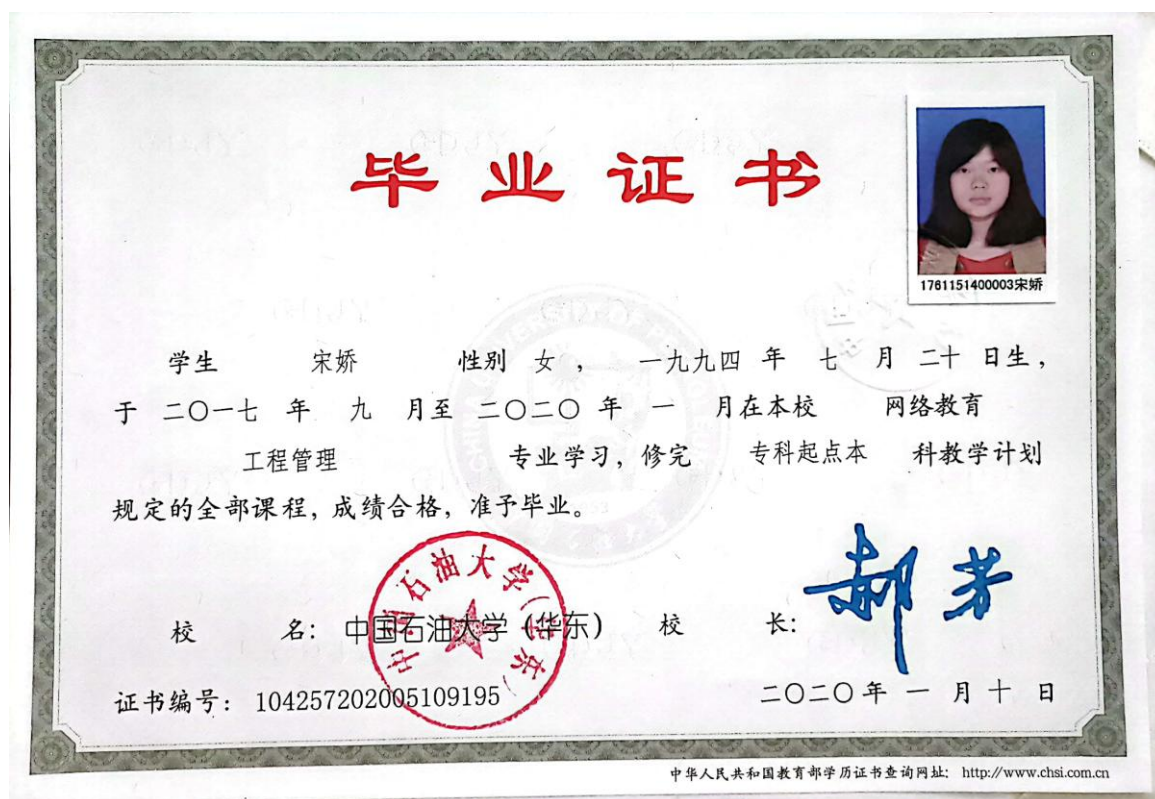 毕业证书
1761151400003宋娇
学生 宋娇 性别 女 , 一九九四 年 七 月 二十 日生,
于 二〇一七 年 九 月至 二〇二〇 年 一 月在本校 网络教育
工程管理 专业学习, 修完 专科起点本 科教学计划
规定的全部课程, 成绩合格, 准予毕业。
中国石油大学(华东)
校 名: 中国石油大学(华东) 校 长: 郝芳
证书编号: 104257202005109195 二〇二〇 年 一 月 十 日
中华人民共和国教育部学历证书查询网址: http://www.chsi.com.cn